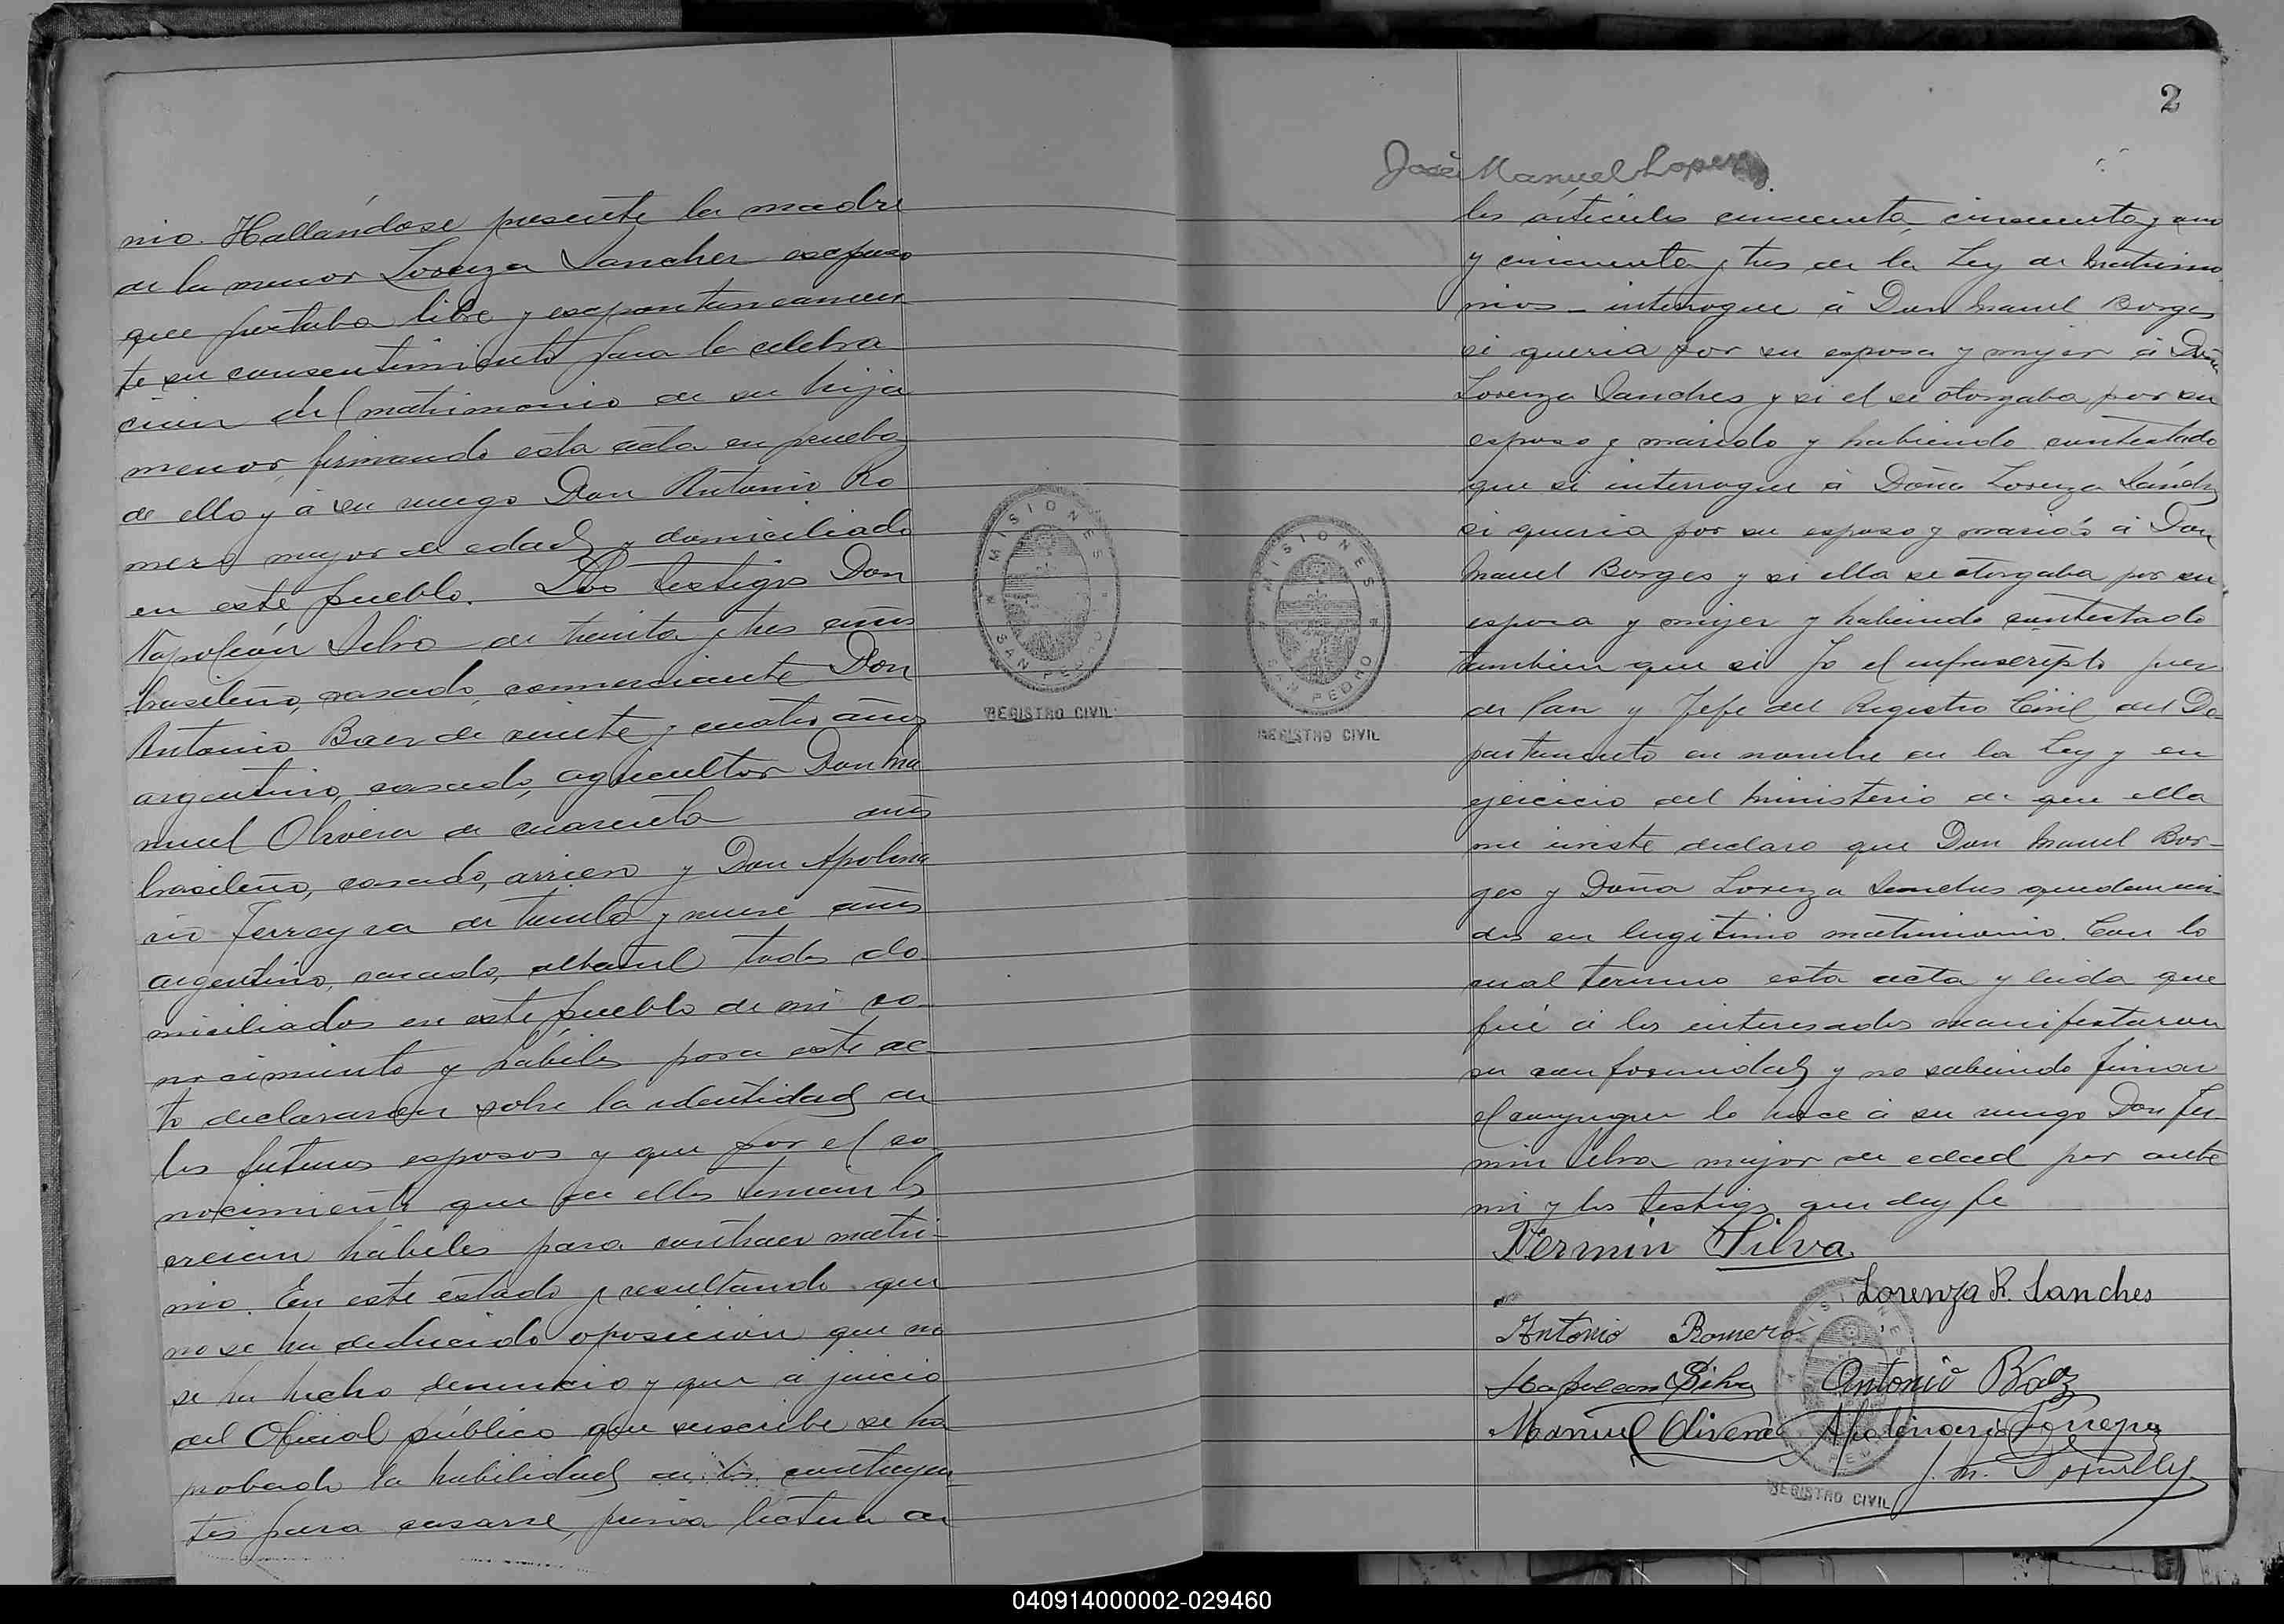 nio. Hallándose presente la madre
de la menor Lorenza Sanches expuso
que prestaba libre y espontaneamen
te su consentimiento para la celebra
cion del matrimonio de su hija
menor, firmando esta acta en prueba
de ello y á su ruego Don Antonio Ro
mero mayor de edad y domiciliado
en este pueblo. Los testigos Don
Napoleón Silva de treinta y tres años
brasileño, casado, commerciante Don
Antonio Baez de veinte y cuatro años
argentino, casado, agricultor Don Ma
nuel Olivera de cuarenta años
brasileño, casado, arriero y Don Apolina
rio Ferreyra de treinta y nueve años
argentino, casado, albañil todos do
miciliados en este pueblo de mi co
nocimiento y hábiles para este ac
to declararon sobre la identidad de
los futuros esposos y que por el co
nocimiento que de ellos tenian los
creian hábiles para contraer matri-
nio. En este estado y resultando que
no se ha deducido oposicion que no
se ha hecho denuncia y que á juicio
del Oficial público que suscribe se ha
probado la habilidad de los contrayen
tes para casarse, previa lectura de
MISIONES
SAN PEDRO
REGISTRO CIVIL
2
José Manuel Lopez
los artículos cincuenta, cincuenta y uno
y cincuenta y tres de la Ley de Matrimo
nios - interrogue á Don Manuel Borges
si queria por su esposa y mujer á Doña
Lorenza Sanches y si el se otorgaba por su
esposo y marido y habiendo contestado
que si interrogue á Doña Lorenza Sánchez
si queria por su esposo y marido á Don
Manuel Borges y si ella se otorgaba por su
esposa y mujer y habiendo contestado
tambien que si Yo el infrascripto Juez
de Paz y Jefe del Registro Civil del De-
partamento en nombre de la Ley y en
ejercicio del ministerio de que ella
me inviste declaro que Don Manuel Bor-
ges y Doña Lorenza Sanches quedan uni-
dos en legitimo matrimonio. Con lo
cual termino esta acta y leida que
fué á los interesados manifestaron
su conformidad y no sabiendo firmar
el conyugue lo hace á su ruego Don Fer-
min Silva mayor de edad por ante
mi y los testigos que doy fe
MISIONES
SAN PEDRO
REGISTRO CIVIL
Fermin Silva
Lorenza R. Sanches
Antonio Romero
Napoleon Silva Antonio Báez
Manuel Olivera Apolinario Ferreyra
J. M.
REGISTRO CIVIL
040914000002-029460